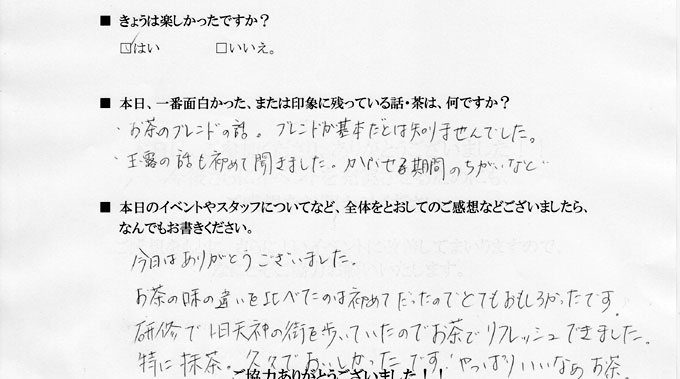 ■ きょうは楽しかったですか？
☑はい　□いいえ。
■ 本日、一番面白かった、または印象に残っている話・茶は、何ですか？
・お茶のブレンドの話。ブレンドが基本だとは知りませんでした。
・玉露の話も初めて聞きました。かぶせる期間のちがいなど
■ 本日のイベントやスタッフについてなど、全体をとおしてのご感想などございましたら、
なんでもお書きください。
今日はありがとうございました。
お茶の味の違いを比べたのは初めてだったのでとてもおもしろかったです。
研修で1日天神の街を歩いていたのでお茶でリフレッシュできました。
特に抹茶。久々でおいしかったです。やっぱりいいなぁお茶。
ご協力ありがとうございました！！